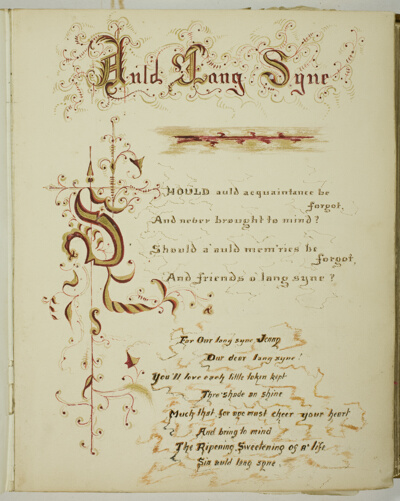 Auld Lang Syne
SHOULD auld acquaintance be
forgot,
And never brought to mind?
Should a' auld mem'ries be
forgot,
And friends o' lang syne?
For Our lang syne Jenny
Our dear lang syne!
You'll love each little token kept
Thro' shade an shine
Much that for age must cheer your heart
And bring to mind
The Ripening, Sweetening of a' life
Sin auld lang syne.